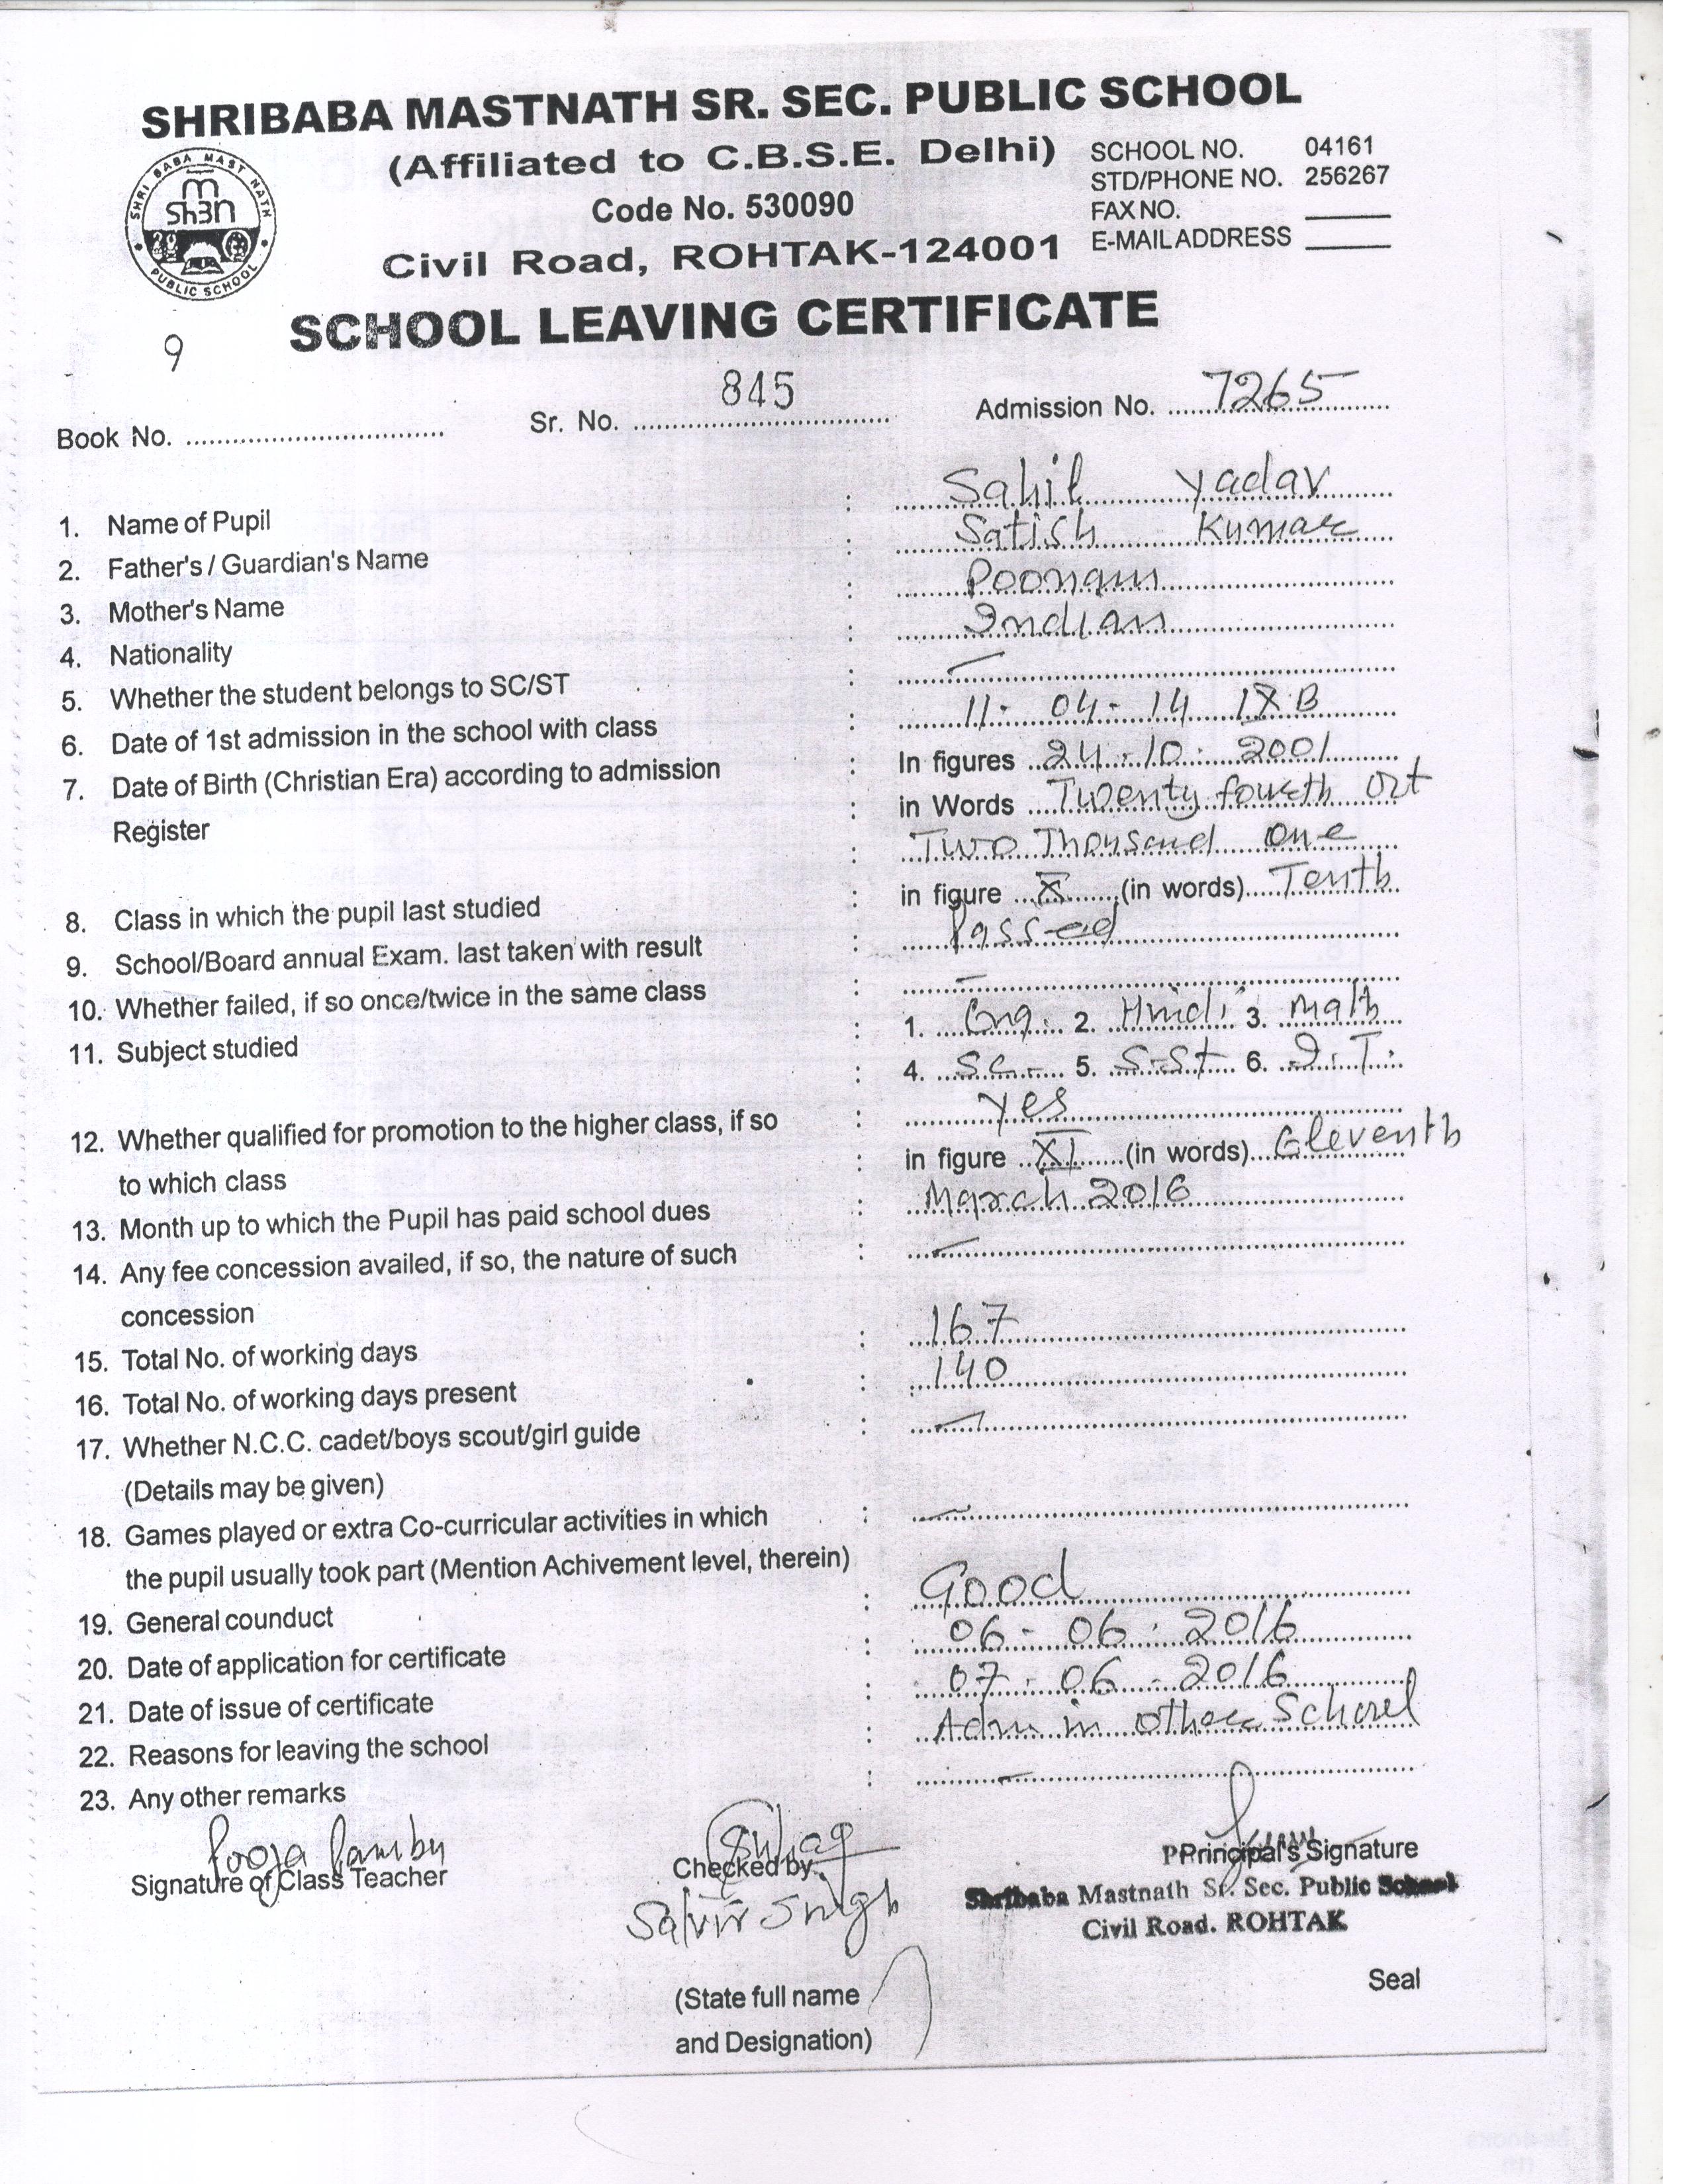 SHRIBABA MASTNATH SR. SEC. PUBLIC SCHOOL
(Affiliated to C.B.S.E. Delhi)
Code No. 530090
Civil Road, ROHTAK-124001
SCHOOL NO. 04161
STD/PHONE NO. 256267
FAX NO.
E-MAIL ADDRESS
SHRI BABA MAST NATH
PUBLIC SCHOOL
SCHOOL LEAVING CERTIFICATE
Book No. 9 Sr. No. 845 Admission No. 7265
1. Name of Pupil : Sahil Yadav
2. Father's / Guardian's Name : Satish Kumar
3. Mother's Name : Poonam
4. Nationality : Indian
5. Whether the student belongs to SC/ST : —
6. Date of 1st admission in the school with class : 11-04-14 IX B
7. Date of Birth (Christian Era) according to admission : In figures 24-10-2001
Register : in Words Twenty fourth Oct
: Two Thousand one
8. Class in which the pupil last studied : in figure X (in words) Tenth
9. School/Board annual Exam. last taken with result : Passed
10. Whether failed, if so once/twice in the same class : —
11. Subject studied : 1. Eng. 2. Hindi 3. Math
: 4. Sc.- 5. S.St 6. I.T.
12. Whether qualified for promotion to the higher class, if so : Yes
to which class : in figure XI (in words) Eleventh
13. Month up to which the Pupil has paid school dues : March 2016
14. Any fee concession availed, if so, the nature of such : —
concession
15. Total No. of working days : 167
16. Total No. of working days present : 140
17. Whether N.C.C. cadet/boys scout/girl guide : —
(Details may be given)
18. Games played or extra Co-curricular activities in which : —
the pupil usually took part (Mention Achivement level, therein)
19. General counduct : Good
20. Date of application for certificate : 06-06-2016
21. Date of issue of certificate : 07-06-2016
22. Reasons for leaving the school : Adm in other School
23. Any other remarks : —
Pooja
Signature of Class Teacher
Checked by
Singh
PPrincipal's Signature
Shribaba Mastnath Sr. Sec. Public School
Civil Road. ROHTAK
Seal
(State full name
and Designation)